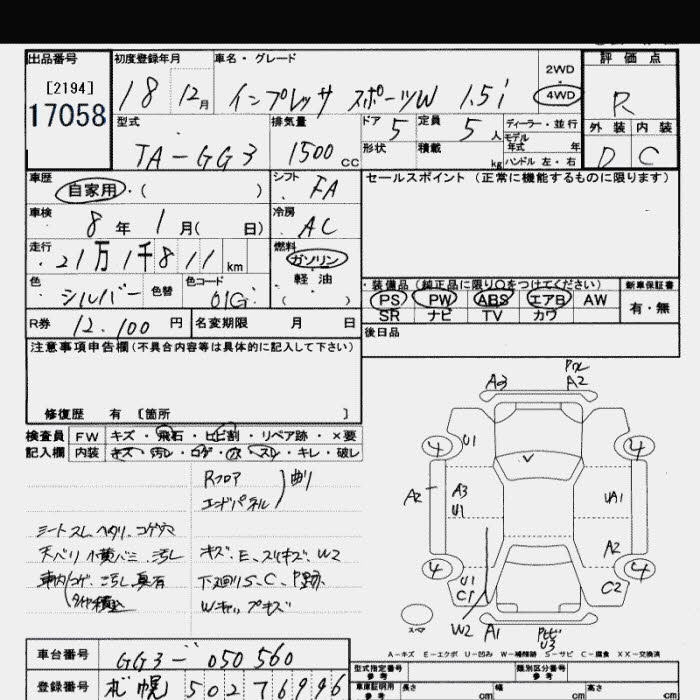 出品番号 初度登録年月 車名・グレード 評価点
[2194]
17058
18 12月 インプレッサ スポーツW 1.5i 2WD 4WD R
型式 排気量 ドア 定員 ディーラー・並行 外装 内装
TA-GG3 1500cc 5 5人 モデル年式 年 D C
形状 積載 kg ハンドル 左・右
車歴 シフト セールスポイント(正常に機能するものに限ります)
自家用・( ) FA
車検 冷房
8年 1月( 日) AC
走行 燃料
21万1千811km ガソリン
軽油
色 色替 色コード ( )
シルバー 01G
・装備品(純正品に限り○をつけてください) 新車保証書
PS PW ABS エアB AW 有・無
SR ナビ TV カワ
R券 12.100円 名変期限 月 日 後日品
注意事項申告欄(不具合内容等は具体的に記入して下さい)
修復歴 有 〔箇所 〕
検査員 FW キズ・飛石・ヒビ割・リペア跡・×要
記入欄 内装 キズ・汚レ・コゲ・穴・スレ・キレ・破レ
Rフロア 曲り
エンドパネル
シートスレ ヘタリ コゲ穴
キズ、E、スリキズ、W2
下廻りS、C、
Wキャップキズ
A3 A2
4 U1 4
A2 A3 U1 UA1
A2
4 U1 C1 4 C2
スペア W2 A1 U3
A-キズ E-エクボ U-凹み W-補修跡 S-サビ C-腐食 XX-交換済
車台番号 GG3-050560
登録番号 札幌 502 7 6996
型式指定番号 参考 類別区分番号 参考
車庫証明用 参考 長さ cm 幅 cm 高さ cm